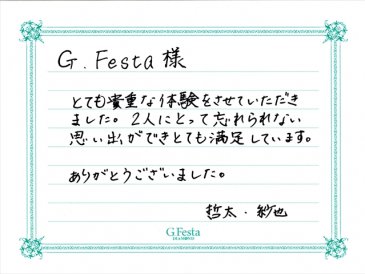 G.Festa様
とても貴重な体験をさせていただき
ました。2人にとって忘れられない
思い出ができとても満足しています。
ありがとうございました。
哲太・紗也
G.Festa
DIAMOND